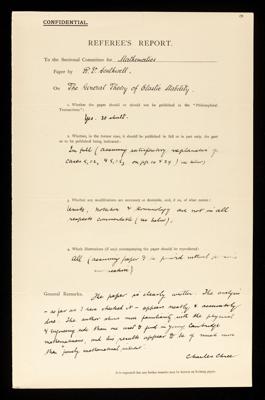 CONFIDENTIAL.
REFEREE'S REPORT.
To the Sectional Committee for Mathematics
Paper by R. V. Southwell.
On The General Theory of Elastic Stability.
1. Whether the paper should or should not be published in the "Philosophical
Transactions":
Yes. It should.
2. Whether, in the former case, it should be published in full or in part only, the part
so to be published being indicated:
In full (assuming satisfactory explanation of
on pp. 20 & 24) as below)
3. Whether any modifications are necessary or desirable, and, if so, of what nature:
Units, notation & terminology are not in all
respects commendable (see below).
4. Which illustrations (if any) accompanying the paper should be reproduced:
All (assuming paper is to be printed without
General Remarks. The paper is clearly written. The analysis
- as far as I have checked it - appears neatly & accurately
done. The author shows more familiarity with the physical
& engineering side than one used to find in young Cambridge
mathematicians, and his results appear to be of much more
than "purely mathematical interest".
Charles Chree
It is requested that any further remarks may be written on